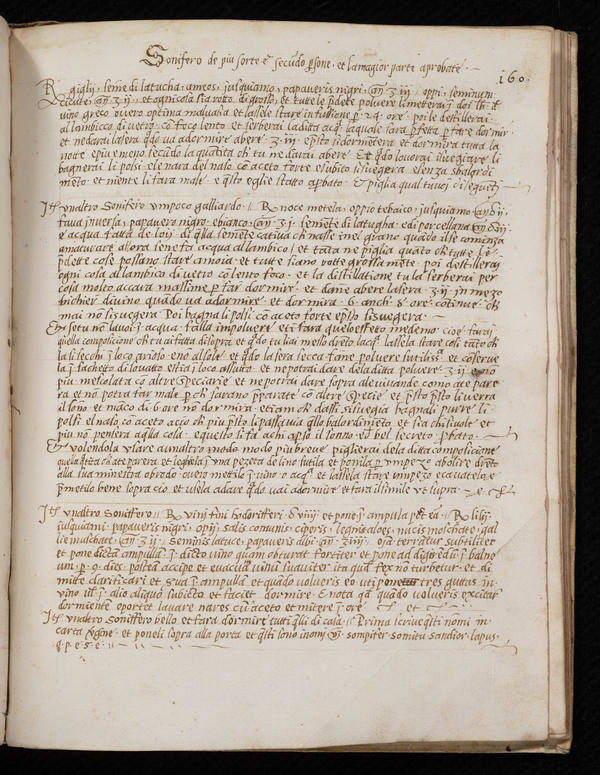 Sonifero de piu sorte et secũdo psone, et la magior parte aprobate
160.
giglij, seme di latucha, ameos, jusquiamo, papaveris nigri, añ ʒ iij oppi, seminum
cicute, añ ʒ ij et ogni cosa sia rotto di grosso, et tutte le p̃dete poluere li meterai j doi lb. d
uino greco overo optima maluatia et lassele stare infusione p 24 ore. poi le destillerai
al lambicco di uetro, cõ foco lento, et serberai la dita acq̃, laquale sara p̃fetta p fare dormir
et nedarai la sera qñdo va a dormire a bere ʒ iij, epsto s'idormẽtera et dormira tuta la
note e piu e meno secũdo la quãtita ch̃ tu ne darai a bere. Et qñdo lo uorai sueghiare li
bagnerai li polsi e le nara del nale cõ aceto forte e subito sisueghera e senza sbalordi
mẽto, et niente li fara male, e q̃sto eglie statto p̃bato. E piglia qual tu uoi di seguẽti
Itẽ unaltro Sonifero un poco galliardo. R noce metela, oppio tebaico, jusquiamo añ ʒ ij,
faua inuersa, papauero nigro e bianco, añ ʒ j, semẽte di latugha, e di porcellana añ ʒ iij,
e acqua fatta de loij di q̃lla semẽte catiua ch̃ nasse inel grano quãdo isse comenza
amaturare allora se ne fa acqua al lambico, et tata ne piglia quãto ch̃ tutte le
p̃dette cose possano stare amoia. et tutte siano rotte grossa mẽte, poi destillerai
ogni cosa al lambico di uetro cõ lento foco. et la distillatione tu la serberai per
cosa molto accara massime p far dormir. et dane abere la sera ʒ ij in mezo
bichier di uino quãdo va a dormire. et dormira 6. anch 8 ore cõtinue ch̃
mai no si suegera Poi bagna li polsi cõ aceto forte epsto si suegera.
Et se tu nõ lauoi j acqua falla impoluere et ti fara quel effetto medemo cioe farai
quella composicione ch̃ taia fatta disopra et qñdo tu liai messo dreto lacq̃ lassela stare cosi tãto ch̃
la si secchi j loco arioso e no al sole. et qñdo la sera secca fane poluere sutiliss.ᵃ et cõserve
la j sachetto di souatto et stia j loco assiuto. et ne potrai dare de la ditta poluere ʒ ij e no
piu mesciolata cõ altre speciarie et ne potrai dare sopra a le uiuande como ate pare
ra et nõ potra far male p ch̃ sarano p̃parate cõ altre specie et p̃sto p̃sto li uerra
il sõno et mãco di 6 ore nõ dormira. etiam ch̃ dassi si suegia bagnali purre li
polsi el naso cõ aceto acio ch̃ piu p̃sto li passa uia q̃llo balordimẽto et sia chi si uolt et
piu nõ pensera a q̃lla cola. e questo li fa achi apso il sonno ed bel secreto p̃bato.
Et volendola usare unaltro modo modo piu breve piglierai de la ditta composicione
quella q̃tita ch̃ ate parera et legela j una pezeta de lino sutila et ponila p un pezo a bolire dreto
alla sua minestra o brodo overo metilo j vino o acq̃ et lassela stare un pezo e cauatelo e
p̃metilo bene sopra cio et usela a dare qñdo vai a dormire et fara il simile ut supra.
Itẽ unaltro sonifero. R Vini fini hodoriferi ℥ viiij et pone j ampulla R lilij,
jusquiami, papaveris nigri, opij, salis comunis, ciperis, legni aloes, nucis moschate, gal
lie muscate, añ ʒ ij, seminis latuce, papaveris albi añ ʒ iiij. oĩa terrãtur subtiliter
et pone dictã ampullã j dicto vino quam obturat fortiter et pone ad digerẽdũ j balneo
um p. 9. dies, postea accipe et evacua vinũ suaviter ita qua fex no turbetur. et di
mite clarificari et s'ua j ampulla et quãdo volueris eo uti pone tres guttas in
vino ul j alio aliquo subitto et faciet dormire. Et nota qa quãdo volueris excitar
dormiente oportet lavare nares cũ aceto et mitere j ore
Itẽ unaltro soniffero bello et fara dormire tutti q̃lli di casa. Prima scriue q̃sti nomi in
carta v̾gine et poneli sopra alla porta et q̃sti sono i nomi sompiter somitu sandior lapus
q. p. e. s. e.